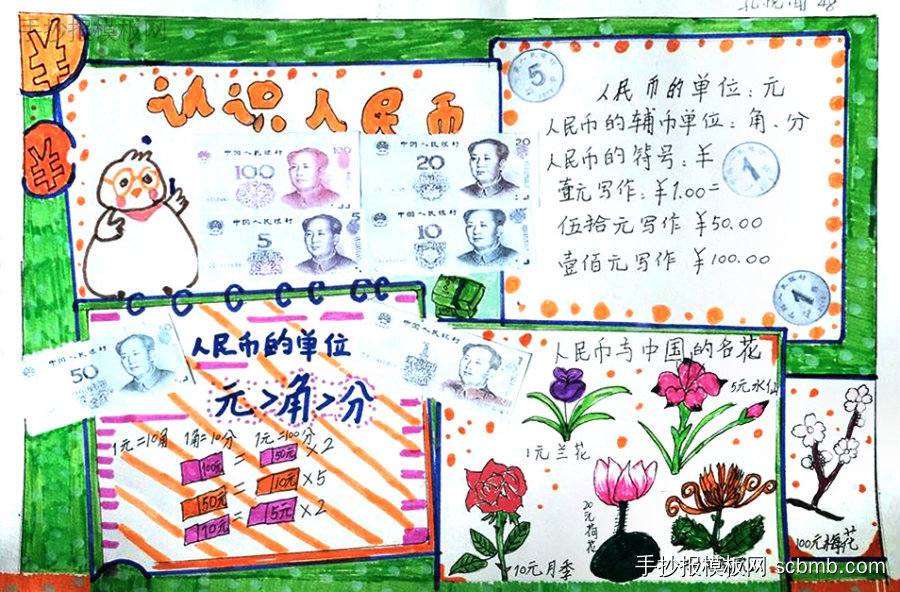 手抄报模板网
¥
¥
认识人民币
中国人民银行
100
100
中国人民银行
20
20
中国人民银行
5
5
中国人民银行
10
5
人民币的单位:元
人民币的辅币单位:角、分
人民币的符号:¥
1
壹元写作:¥1.00=
伍拾元写作 ¥50.00
壹佰元写作 ¥100.00
1
中国人民银行
50
50
1
人民币的单位
元>角>分
1元=10角 1角=10分 1元=100分
100元 = 50元 ×2
50元 = 10元 ×5
10元 = 5元 ×2
人民币与中国的名花
1元兰花
5元水仙
20元荷花
10元月季
100元梅花
手抄报模板网 scbmb.com